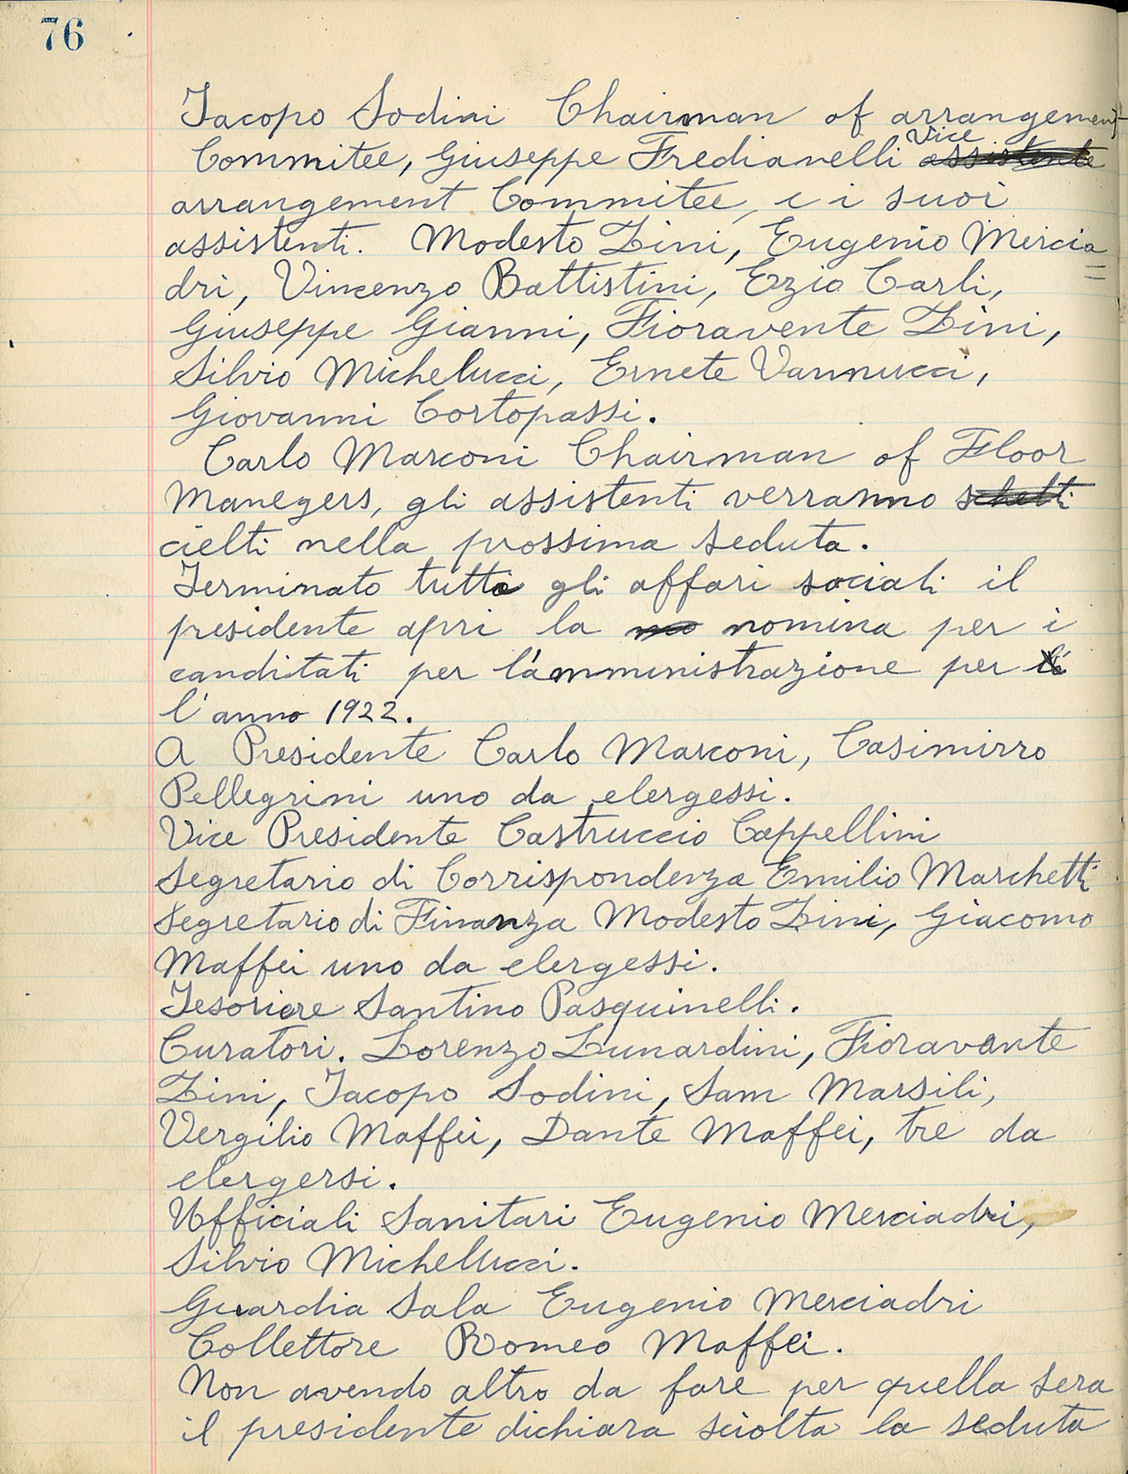 76
Jacopo Sodini Chairman of arrangement
Commitee, Giuseppe Fredianelli Vice assistente
arrangement Commitee, e i suoi
assistenti. Modesto Lini, Eugenio Mercia=
dri, Vincenzo Battistini, Ezio Carli,
Giuseppe Gianni, Fioravente Lini,
Silvio Michelucci, Ernete Vannucci,
Giovanni Cortopassi.
Carlo Marconi Chairman of Floor
Manegers, gli assistenti verranno schelti
cielti nella prossima seduta.
Terminato tutto gli affari sociali il
presidente apri la no nomina per i
canditati per l'amministrazione per li
l'anno 1922.
A Presidente Carlo Marconi, Casimirro
Pellegrini uno da elergessi.
Vice Presidente Castruccio Cappellini
Segretario di Corrispondenza Emilio Marchetti
Segretario di Finanza Modesto Lini, Giacomo
Maffei uno da elergessi.
Tesoriere Santino Pasquinelli.
Curatori. Lorenzo Lunardini, Fioravante
Lini, Jacopo Sodini, Sam Marsili,
Vergilio Maffei, Dante Maffei, tre da
elergersi.
Ufficiali Sanitari Eugenio Merciadri,
Silvio Michellucci.
Guardia Sala Eugenio Merciadri
Collettore Romeo Maffei.
Non avendo altro da fare per quella sera
il presidente dichiara sciolta la seduta